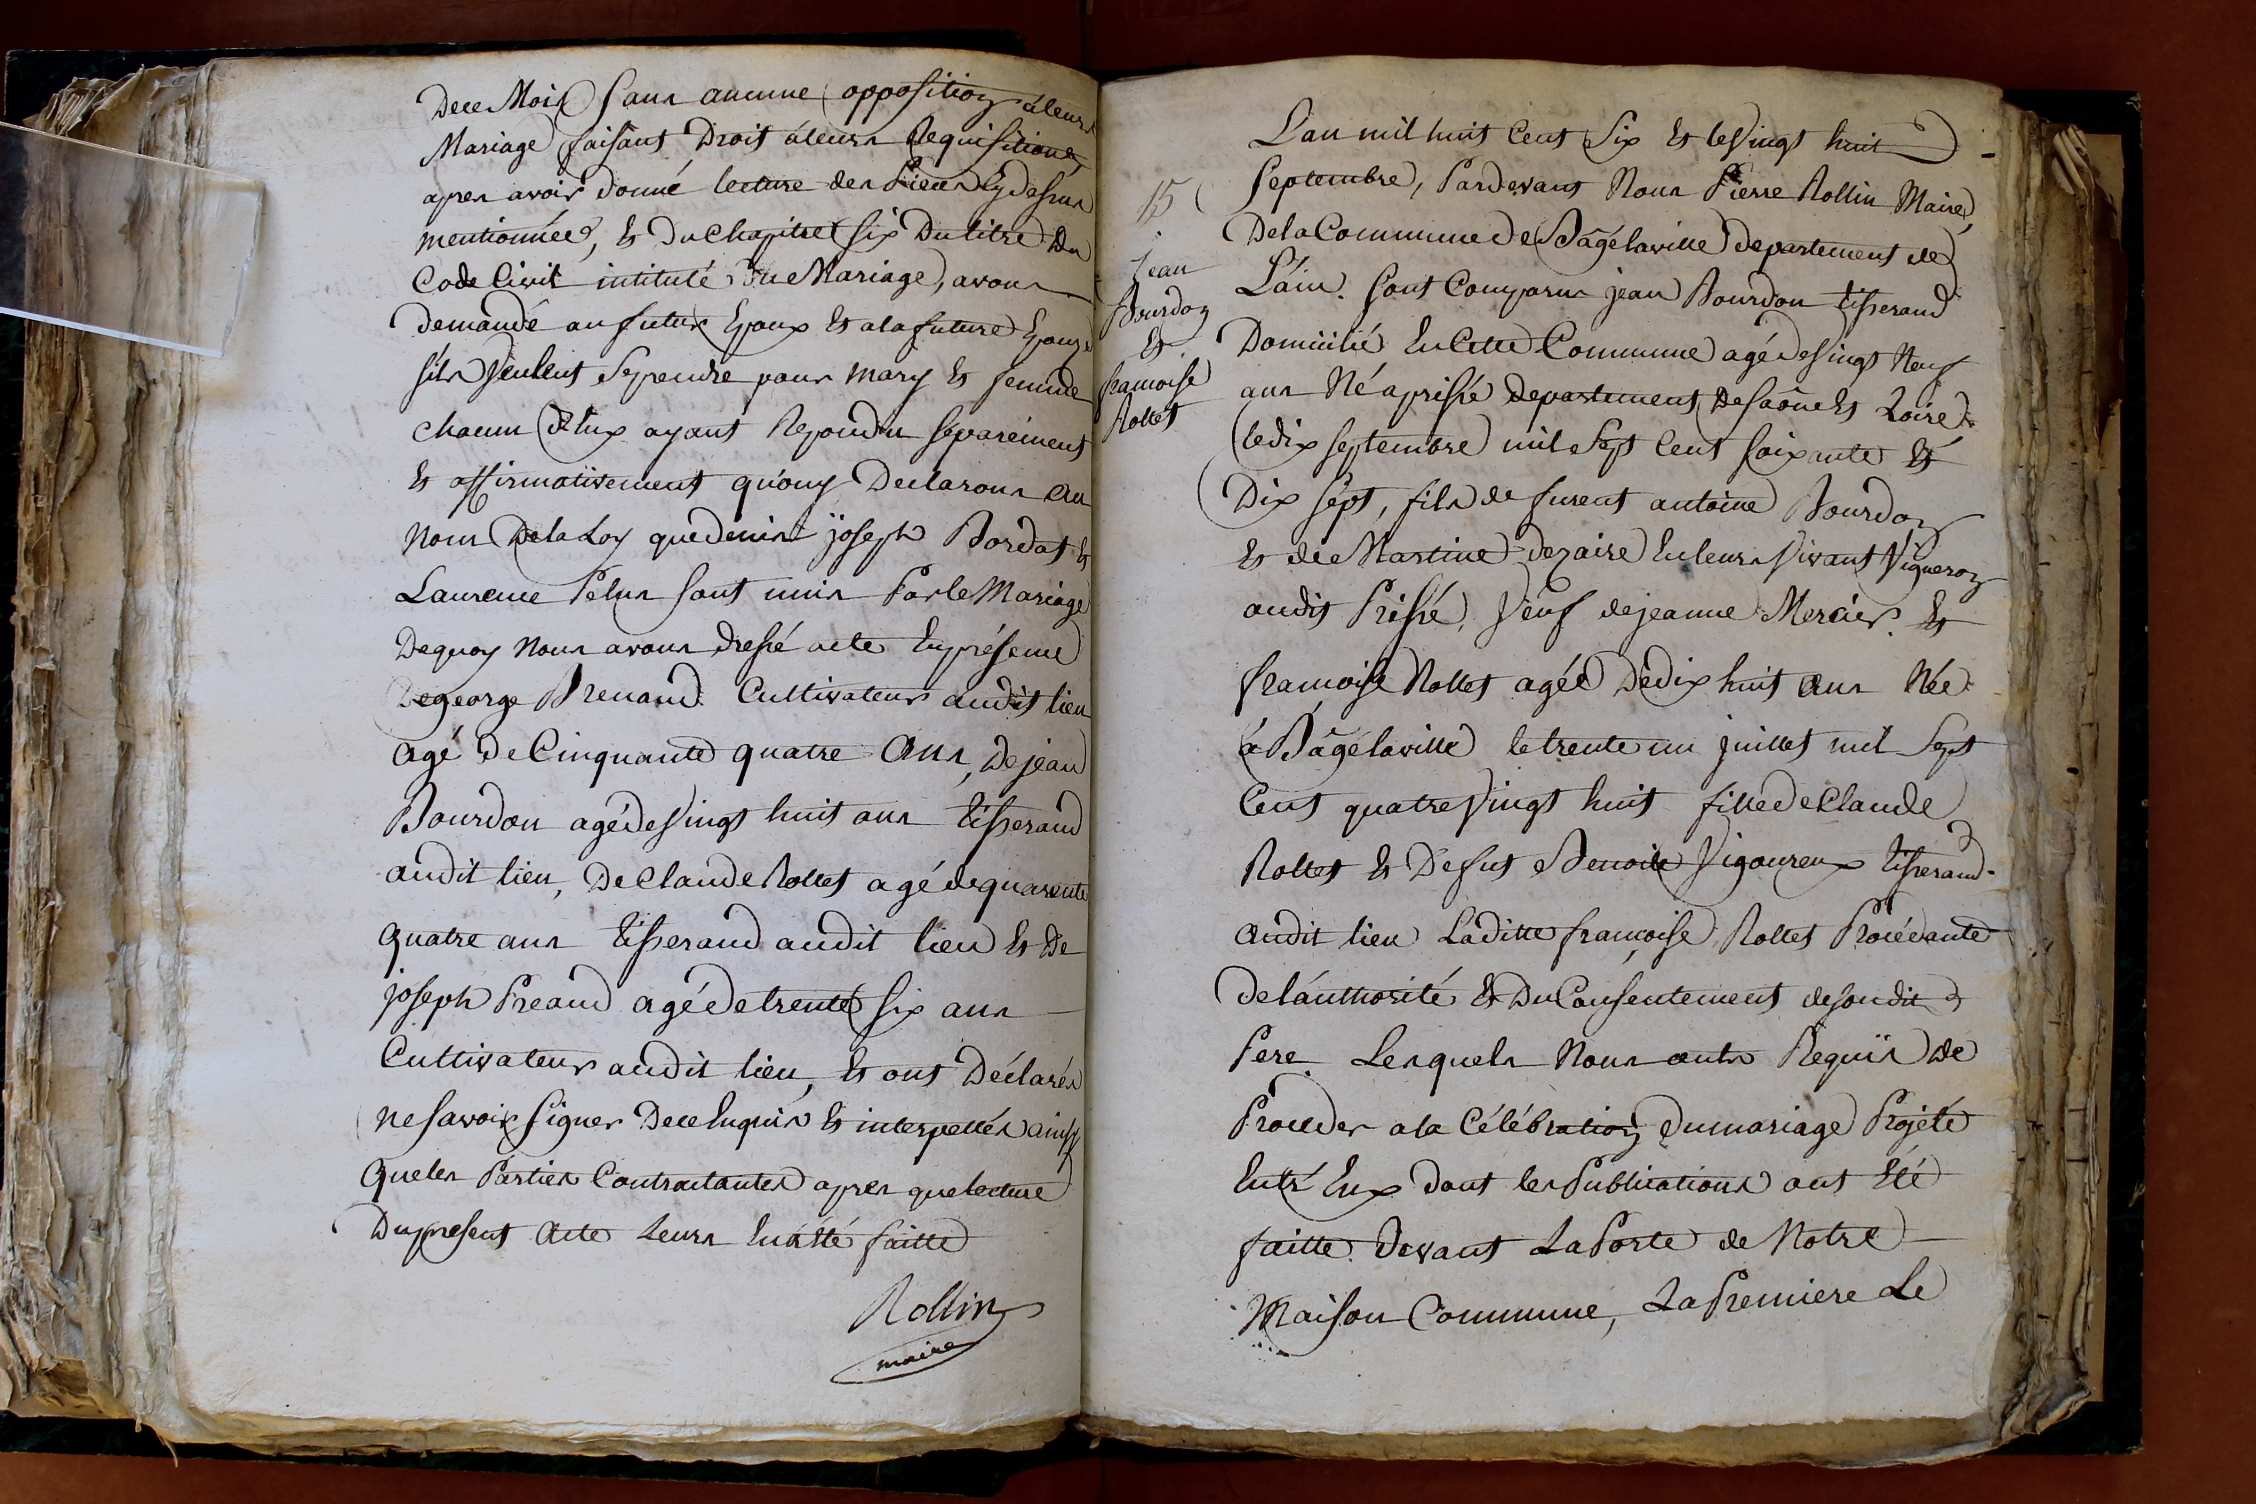 Dece Mois sans aucune opposition à leurs
Mariage faisant Droit à leurs Requisitions
apres avoir donné lecture des Pieces Cy dessus
mentionnées, Et Du Chapitre six Du titre Du
Code Civil intitulé Du Mariage, avons
demandé au futur Epoux Et a la future Epouse
s'ils Veulent Se prendre pour mary Et femme
chacun d'Eux ayant Repondu séparément
Et affirmativement qu'ouy Declarons au
Nom De la Loy que denis joseph Bordat Et
Laurence Pelus sont unis Par le Mariage
De quoy Nous avons dressé acte En présence
De george Brenaud Cultivateur audit lieu
agé De Cinquante quatre Ans, De jean
Bourdon agé de Vingt huit ans tisserand
audit lieu, De Claude Rollet agé de quarente
quatre ans tisserand audit lieu Et De
joseph Preaud agé De trente six ans
Cultivateur audit lieu, Et ont Déclarés
ne savoir signer De ce Enquis Et interpellés ainsy
que les Parties Contractantes apres que lecture
Du present Acte Leurs En a été faitte
Rollin
maire
15
Jean
Bourdon
Et
francoise
Rollet
L'an mil huit Cent Six Et le Vingt huit
Septembre, Pardevant Nous Pierre Rollin Maire
De la Commune De Bâgé la ville departement de
L'ain. sont Comparus jean Bourdon tisserand
Domicilié En Cette Commune agé de Vingt Neuf
ans Né a prissé departement De saône Et Loire
le dix septembre mil Sept Cent soixante Et
Dix sept, fils de furent antoine Bourdon
Et de Martine dezaire En leurs Vivant Vigneron
audit Prissé, Veuf de jeanne Mercier. Et
francoise Rollet agée De dix huit Ans Née
a Bâgé la ville le trente un juillet mil Sept
Cent quatre Vingt huit fille De Claude
Rollet Et De fut Benoite Vigoureux tisserand
audit lieu Laditte françoise Rollet Procédante
De l'authorité Et Du Consentement de son dit
Pere Lesquels Nous onts Requis de
Proceder a la Célébration Du mariage Projeté
Entr'Eux dont les Publications ont Eté
faitte Devant La Porte de Notre
Maison Commune, La Premiere Le